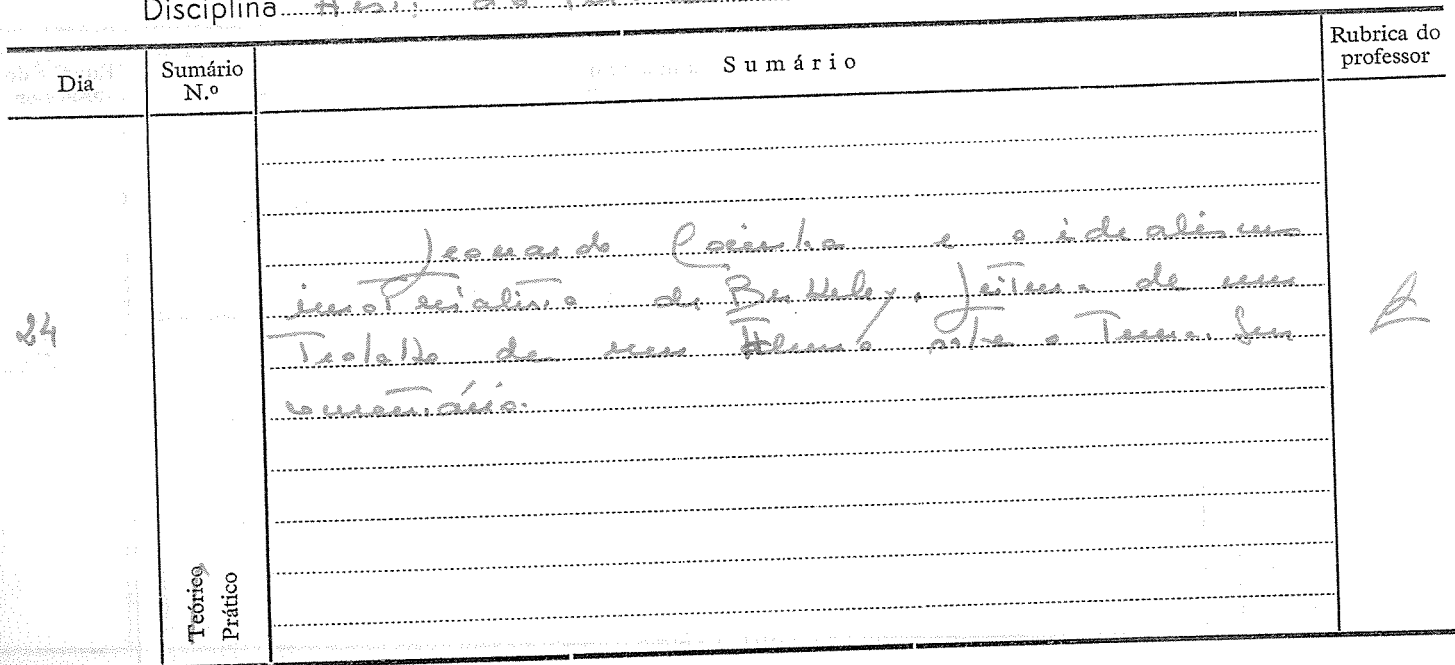 Disciplina
Dia
Sumário N.º
Sumário
Rubrica do professor
Leonardo Coimbra e o idealismo
imaterialista de Berkeley. Leitura de um
Trabalho de um Aluno sobre o Tema. Seu
comentário.
24
Teórico
Prático